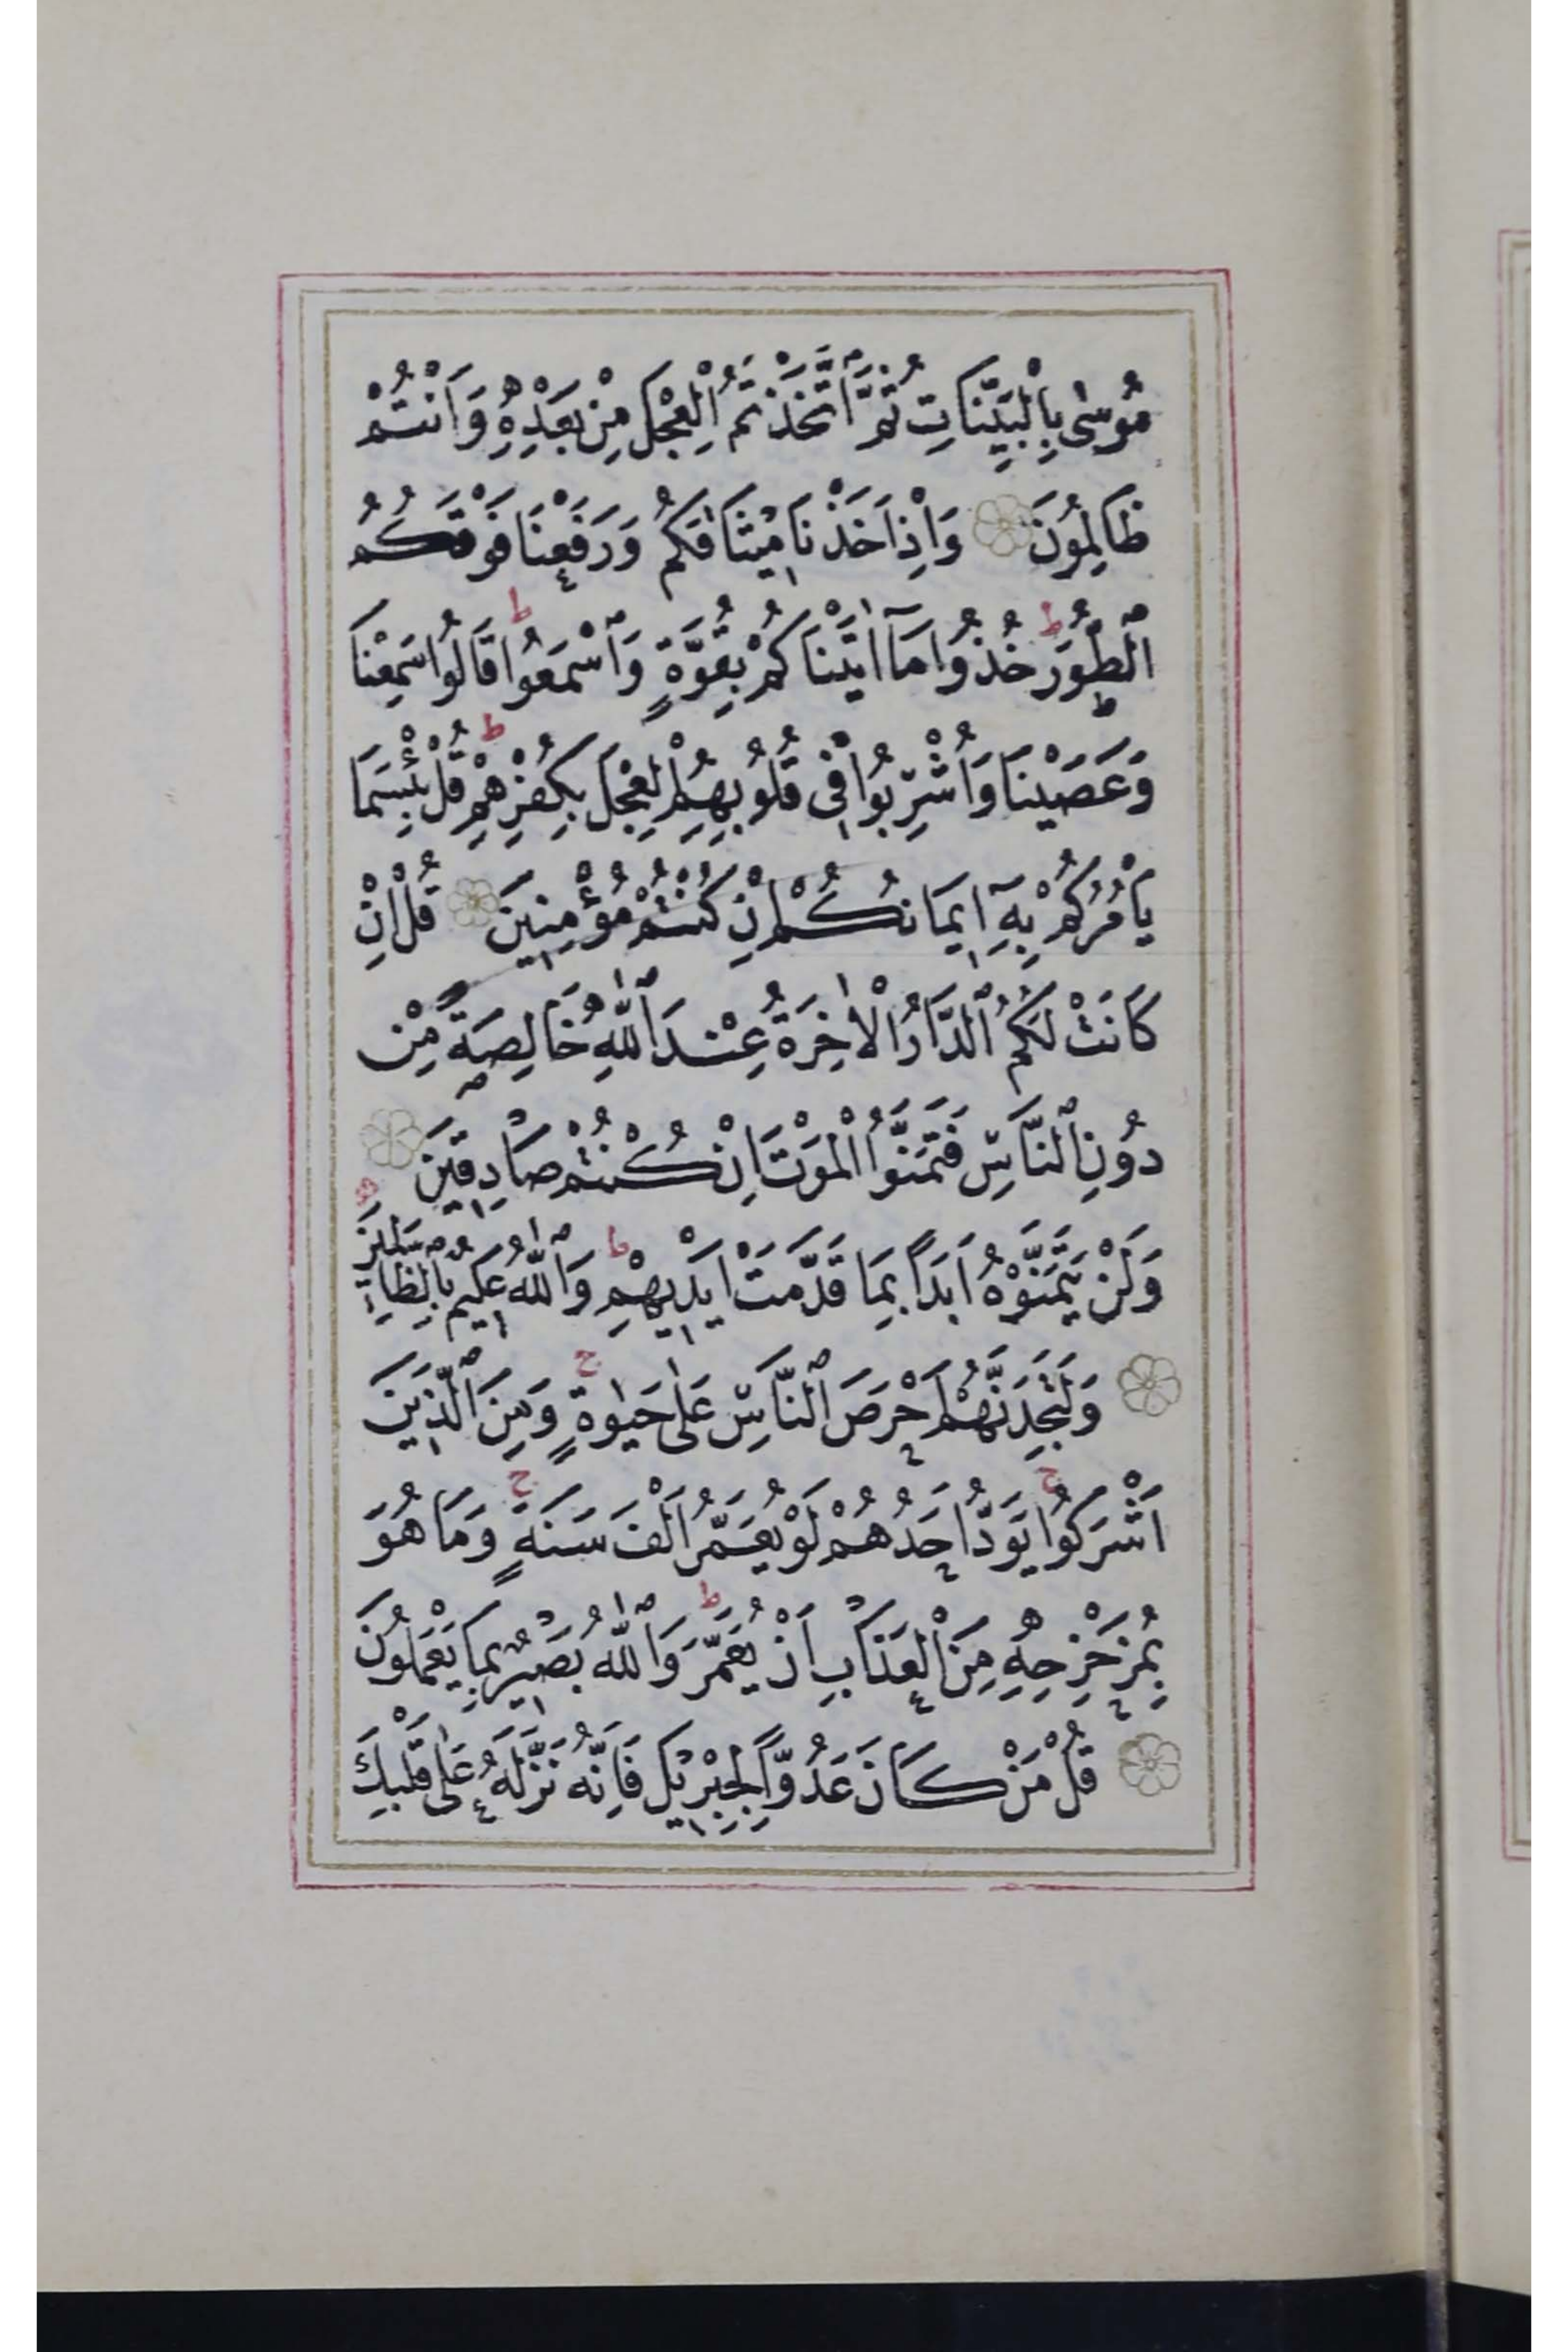 مُوسٰى بِالْبَيِّنَاتِ ثُمَّ اتَّخَذْتُمُ الْعِجْلَ مِنْ بَعْدِهِ وَاَنْتُمْ
ظَالِمُونَ وَاِذْ اَخَذْنَا مِيثَاقَكُمْ وَرَفَعْنَا فَوْقَكُمُ
الطُّورَ ط خُذُوا مَآ اٰتَيْنَاكُمْ بِقُوَّةٍ وَاسْمَعُوا ط قَالُوا سَمِعْنَا
وَعَصَيْنَا وَاُشْرِبُوا فِى قُلُوبِهِمُ الْعِجْلَ بِكُفْرِهِمْ ط قُلْ بِئْسَمَا
يَاْمُرُكُمْ بِهِٓ اِيمَانُكُمْ اِنْ كُنْتُمْ مُؤْمِنِينَ قُلْ اِنْ
كَانَتْ لَكُمُ الدَّارُ الْاٰخِرَةُ عِنْدَ اللّٰهِ خَالِصَةً مِنْ
دُونِ النَّاسِ فَتَمَنَّوُا الْمَوْتَ اِنْ كُنْتُمْ صَادِقِينَ
وَلَنْ يَتَمَنَّوْهُ اَبَدًا بِمَا قَدَّمَتْ اَيْدِيهِمْ ط وَاللّٰهُ عَلِيمٌ بِالظَّالِمِينَ
وَلَتَجِدَنَّهُمْ اَحْرَصَ النَّاسِ عَلٰى حَيٰوةٍ ج وَمِنَ الَّذِينَ
اَشْرَكُوا ج يَوَدُّ اَحَدُهُمْ لَوْ يُعَمَّرُ اَلْفَ سَنَةٍ ج وَمَا هُوَ
بِمُزَحْزِحِهِ مِنَ الْعَذَابِ اَنْ يُعَمَّرَ ط وَاللّٰهُ بَصِيرٌ بِمَا يَعْمَلُونَ
قُلْ مَنْ كَانَ عَدُوًّا لِجِبْرِيلَ فَاِنَّهُ نَزَّلَهُ عَلٰى قَلْبِكَ